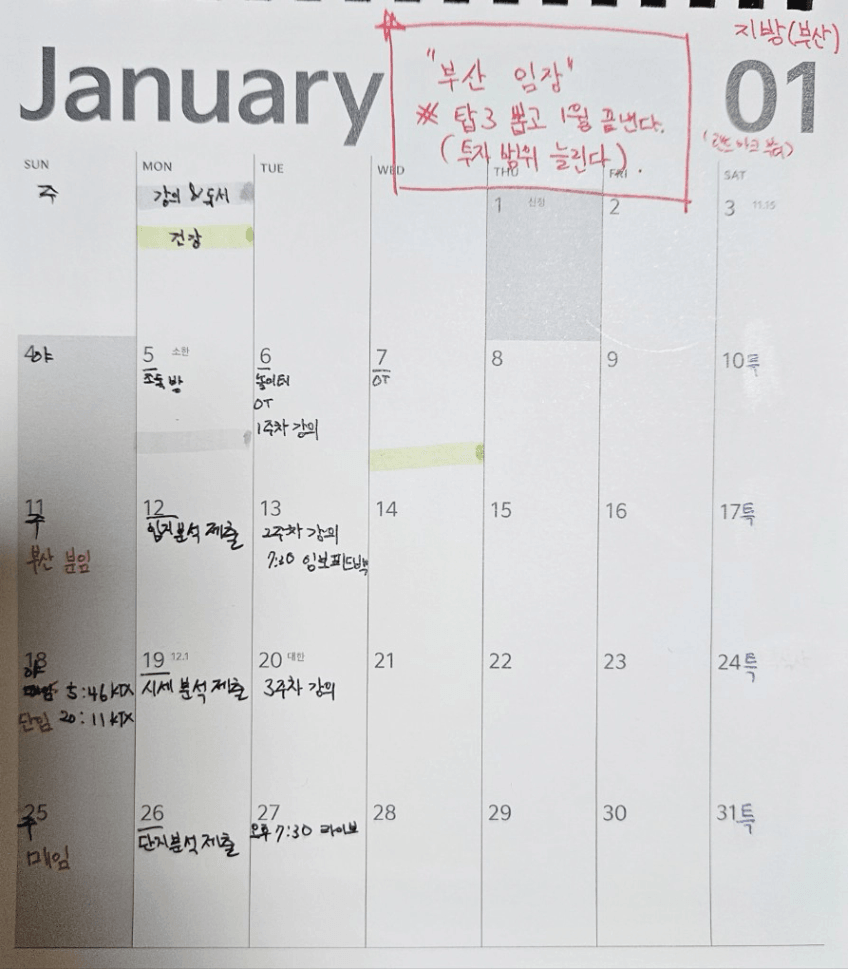 지방(부산)
January
"부산 임장"
※ 탑3 뽑고 1월 끝낸다.
(투자 범위 늘린다).
01
SUN MON TUE WED THU FRI SAT
주
강의 & 독서
건강
1 신정
2
3 11.15
4 야
5 소한
조독방
6
놀이터
OT
1주차 강의
7
OT
8
9
10 특
11
주
부산 분임
12
입지분석 제출
13
2주차 강의
7:30 임보피드백
14
15
16
17 특
18
야
5:46 KTX
단임 20:11 KTX
19 12.1
시세 분석 제출
20 대한
3주차 강의
21
22
23
24 특
25
주
매임
26
단지분석 제출
27
오후 7:30 라이브
28
29
30
31 특